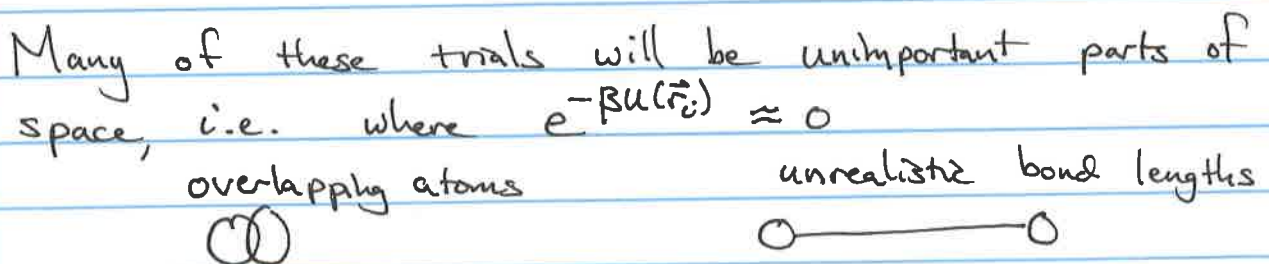 Many of these trials will be unimportant parts of
space, i.e. where e^{-βU(\vec{r}_i)} ≈ 0
overlapping atoms unrealistic bond lengths